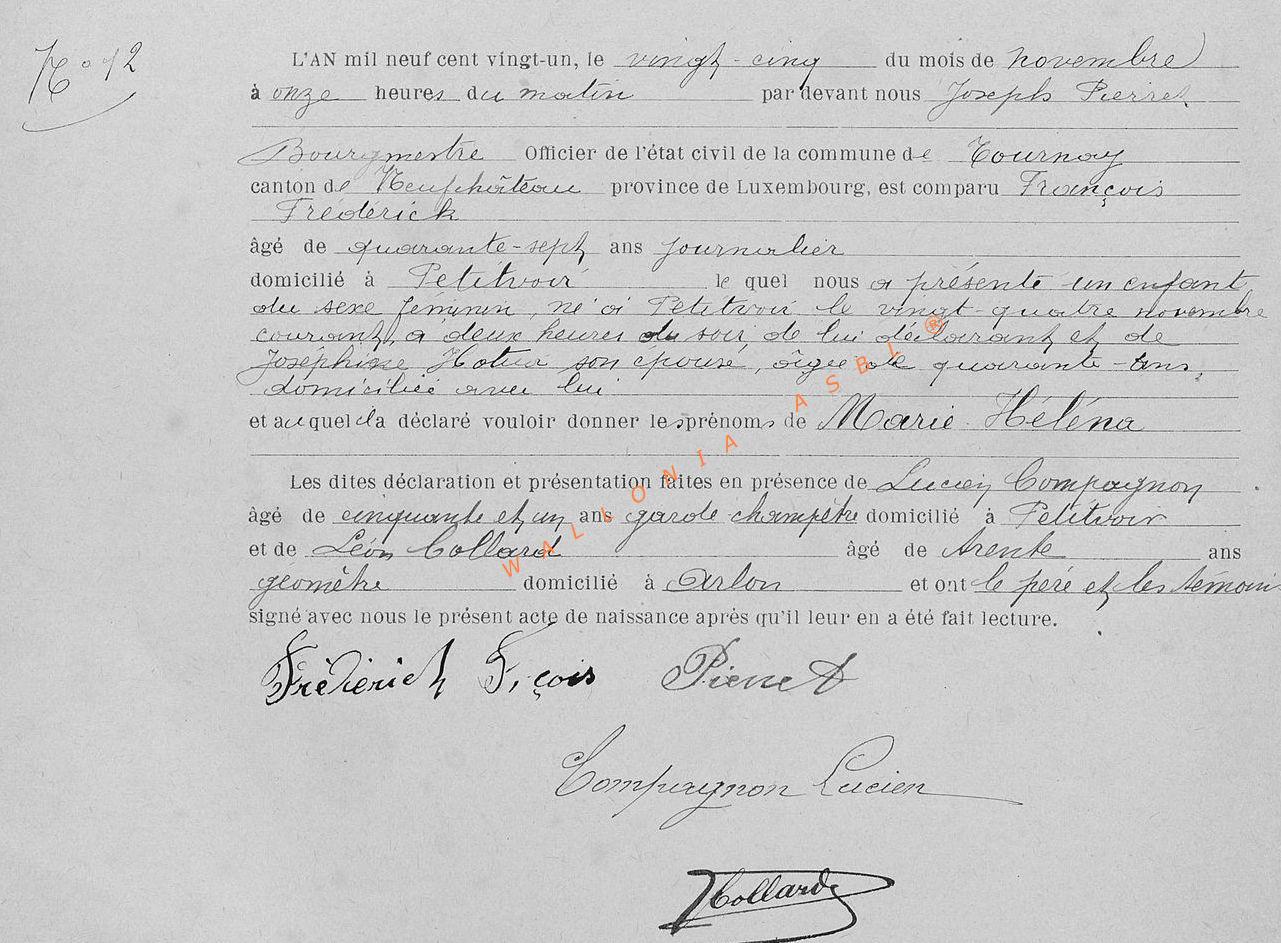 N° 12
L'AN mil neuf cent vingt-un, le vingt-cinq du mois de novembre
à onze heures du matin par devant nous Joseph Pierret
Bourgmestre Officier de l'état civil de la commune de Tournay
canton de Neufchâteau province de Luxembourg, est comparu François
Fréderick
âgé de quarante-sept ans journalier
domicilié à Petitvoir le quel nous a présenté un enfant
du sexe féminin, né à Petitvoir le vingt-quatre novembre
courant, à deux heures du soir, de lui déclarant et de
Joséphine son épouse, âgée de quarante ans,
domiciliée avec lui
et auquel il a déclaré vouloir donner les prénoms de Marie Héléna
Les dites déclaration et présentation faites en présence de Lucien Compagnon
âgé de cinquante et un ans garde-champêtre domicilié à Petitvoir
et de Léon Collard âgé de trente ans
géomètre domicilié à Arlon et ont le père et les témoins
signé avec nous le présent acte de naissance après qu'il leur en a été fait lecture.
Fréderick F.çois Pierret
Compagnon Lucien
LCollard
WALLONIA ASBL ®